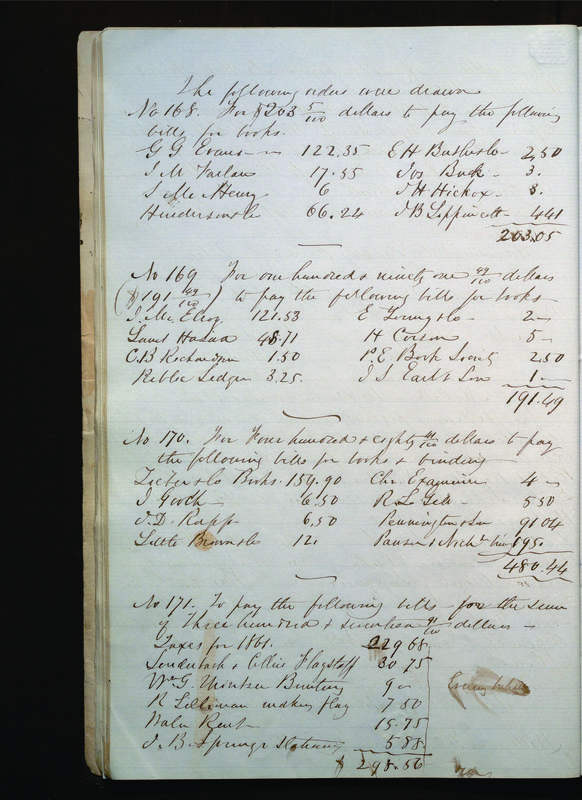 The following orders were drawn
No 168. For $203 5/100 dollars to pay the following
bills for books.
G G Evans 122.35 E H Butler & Co 2,50
J M 17.55 Jos Buck 3.
6 J H Hickox 3.
66.24 J B Lippincott 4.41
203.05
No 169 For one hundred & ninety one 49/100 dollars
($191 49/100) to pay the following bills for books
J. Mc Elroy 121.53 E Young & Co 2
Saml Hazard 48.71 H 5
C. B Richardson 1.50 P. E Book Society 2.50
Public Ledger 3.25. J S Earl & Son 1
191.49
No 170. For Four hundred & eighty 44/100 dollars to pay
the following bills for books & binding
& Co Books. 159.90 Chr. Examiner 4
J Gooch 6.50 R L 5 50
J. D. Rapp 6,50 Pennington & Son 91 04
Little Brown & Co 12. 195.
480.44
No 171. To pay the following bills for the sum
of Three hundred & seventeen dollars
Taxes for 1861. 229 68
& Collins Flagstaff 30 75
Wm G. Bunting 9
R making flag 7.50
Water Rent 15.75
J. B. Springer Stationery 5 88
$ 298.56